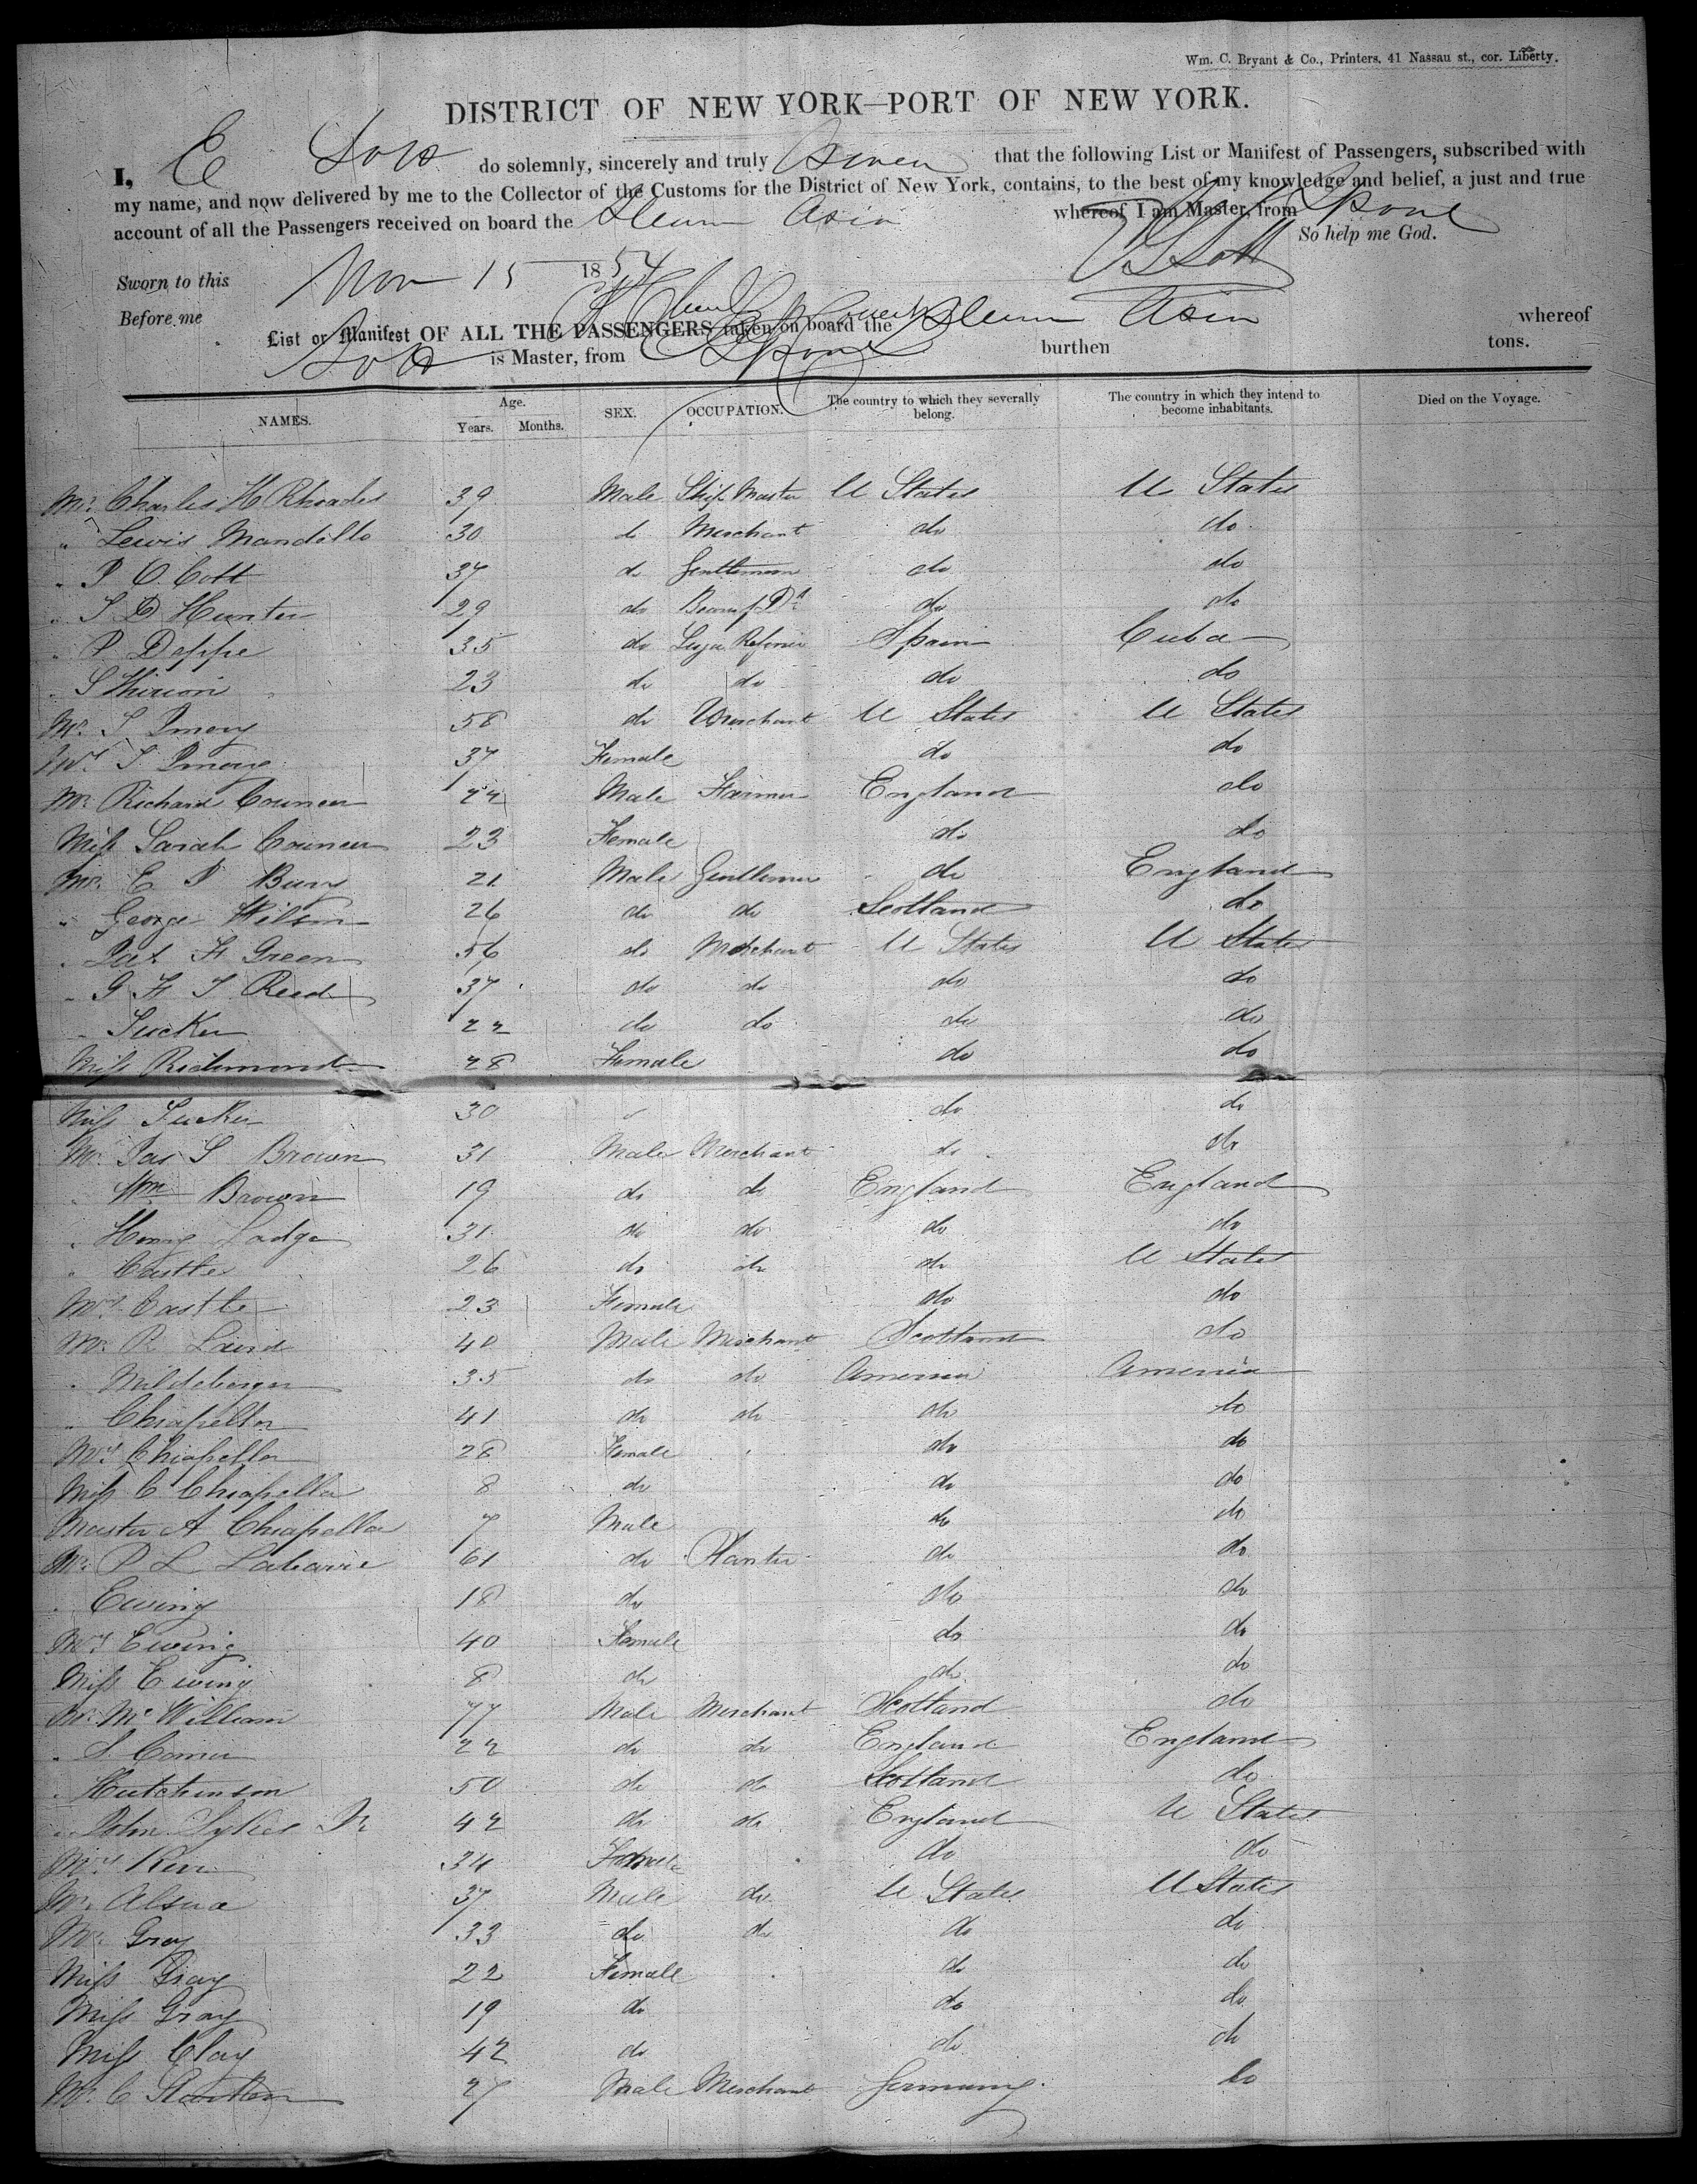 Wm. C. Bryant & Co., Printers, 41 Nassau st., cor. Liberty.
DISTRICT OF NEW YORK—PORT OF NEW YORK.
I, E Lott do solemnly, sincerely and truly Swear that the following List or Manifest of Passengers, subscribed with
my name, and now delivered by me to the Collector of the Customs for the District of New York, contains, to the best of my knowledge and belief, a just and true
account of all the Passengers received on board the Steam Asia whereof I am Master, from L'pool
So help me God.
Sworn to this Nov 15 1854 E G Lott
Before me
List or Manifest OF ALL THE PASSENGERS taken on board the Steam Asia whereof
Lott is Master, from L'pool burthen tons.
NAMES. Age. Years. Months. SEX. OCCUPATION. The country to which they severally belong. The country in which they intend to become inhabitants. Died on the Voyage.
Mr. Charles H Rhoades 39 Male Ship Master U States U States
" Lewis Mandello 30 do Merchant do do
" P O. Cott 37 do Gentleman do do
" S D Hunter 29 do do do
" P Deppe 35 do Sugar Refiner Spain Cuba
" S Thirion 23 do do do do
Mr. S Pmory 58 do Merchant U States U States
Mrs S. Pmory 37 Female do do
Mr. Richard Councer 22 Male Farmer England do
Miss Sarah Councer 23 Female do do
Mr. E P Bury 21 Male Gentleman do England
" George Wilson 26 do do Scotland do
" Jas. H Green 56 do Merchant U States U States
" G H S Reed 37 do do do do
" Tucker 22 do do do do
Miss Richmond 28 Female do do
Miss Tucker 30 " do do
Mr. Jas S Brown 31 Male Merchant do do
" Wm Brown 19 do do England England
" Henry Lodge 31 do do do do
" Castle 26 do do do U States
Mrs. Castle 23 Female do do
Mr. R Laird 40 Male Merchant Scotland do
" Mildeberger 35 do do America America
" Chiapella 41 do do do do
Mrs. Chiapella 28 Female do do
Miss C Chiapella 8 do do do
Master A Chiapella 7 Male do do
Mr. P L Labarre 61 do Planter do do
" Ewing 18 do do do
Mrs Ewing 40 Female do do
Miss Ewing 8 do do do
Mr. McWilliam 77 Male Merchant Scotland do
" S. Comer 22 do do England England
" Hutchinson 50 do do Scotland do
" John Sykes Jr 42 do do England U States
Mrs Kerr 34 Female do do
Mr. Alsua 37 Male do U States U States
Mr. Gray 33 do do do do
Miss Gray 22 Female do do
Miss Gray 19 do do do
Miss Clay 42 do do do
Mr. C 27 Male Merchant Germany do